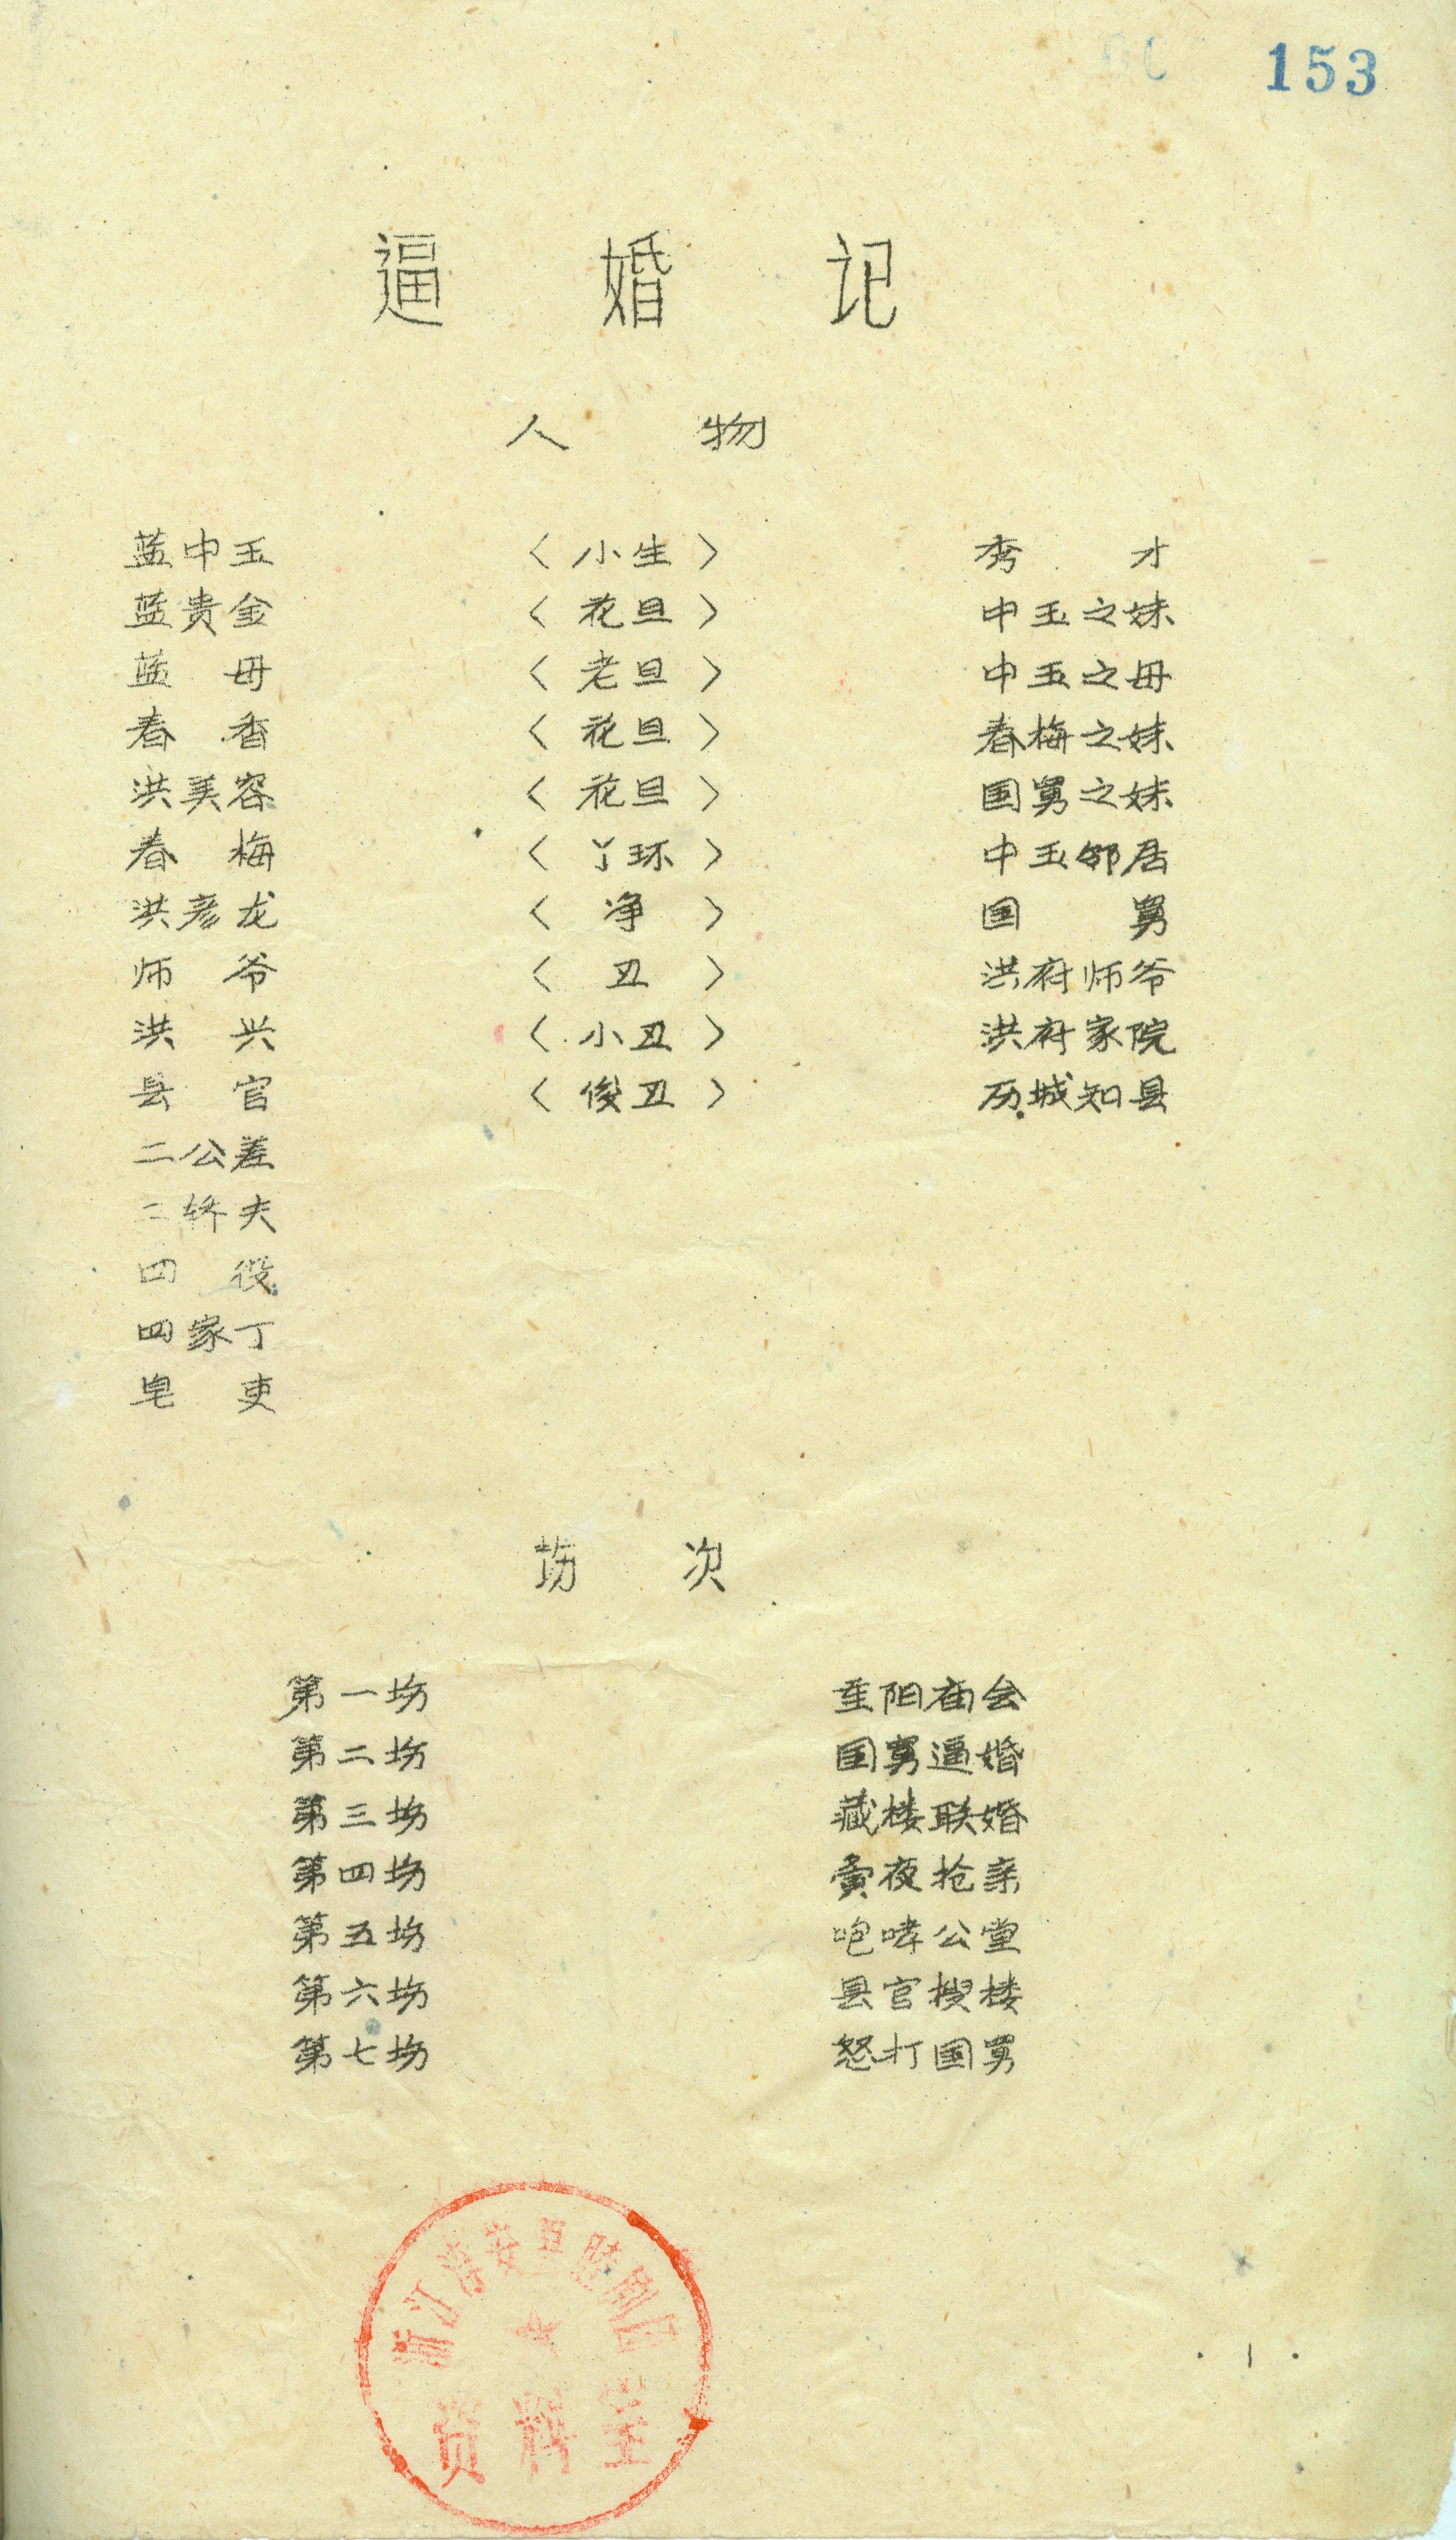 153
逼婚记
人物
蓝中玉 〈小生〉 秀才
蓝贵金 〈花旦〉 中玉之妹
蓝母 〈老旦〉 中玉之母
春香 〈花旦〉 春梅之妹
洪美容 〈花旦〉 国舅之妹
春梅 〈丫环〉 中玉邻居
洪彦龙 〈净〉 国舅
师爷 〈丑〉 洪府师爷
洪兴 〈小丑〉 洪府家院
县官 〈俊丑〉 历城知县
二公差
二轿夫
四役
四家丁
皂吏
场次
第一场 重阳庙会
第二场 国舅逼婚
第三场 藏楼联婚
第四场 黄夜抢亲
第五场 咆哮公堂
第六场 县官搜楼
第七场 怒打国舅
浙江淳安县睦剧团
资料室
·1·